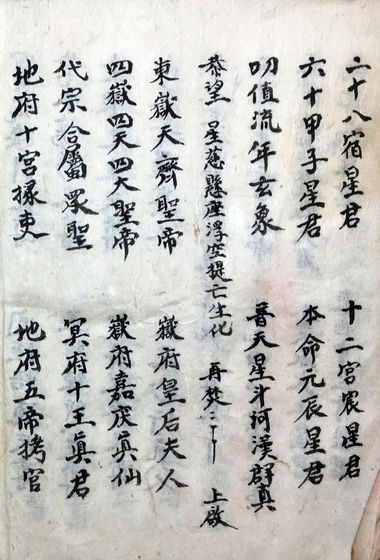 二十八宿星君　十二宮宸星君
六十甲子星君　本命元辰星君
叨值流年玄象　普天星斗河漢群真
恭望　星慈懸座浮空提亡生化　再焚　上啟
東嶽天齊聖帝　嶽府皇后夫人
四嶽四天四大聖帝　嶽府嘉庆真仙
代宗合屬眾聖　冥府十王真君
地府十宮掾吏　地府五帝拷官